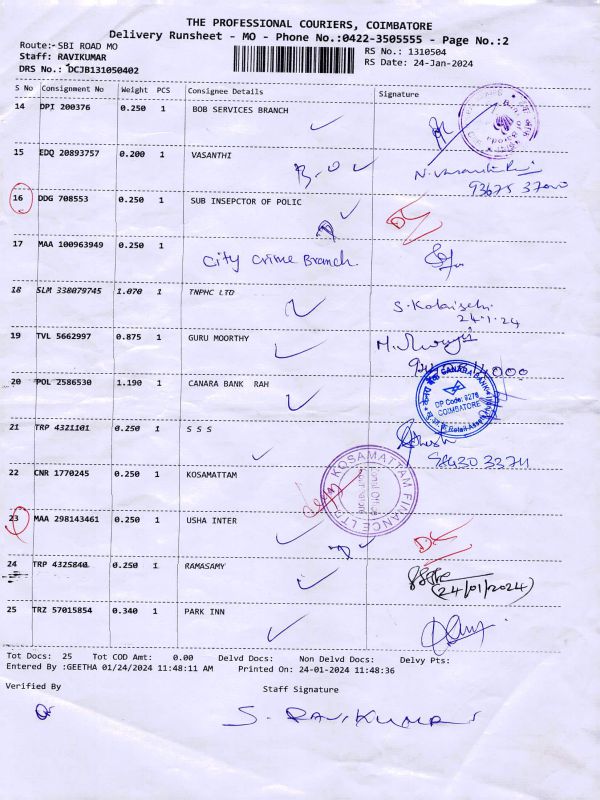 THE PROFESSIONAL COURIERS, COIMBATORE
Delivery Runsheet - MO - Phone No.:0422-3505555 - Page No.:2
Route:- SBI ROAD MO
RS No.: 1310504
Staff: RAVIKUMAR
RS Date: 24-Jan-2024
DRS No.: DCJB131050402
S No Consignment No Weight PCS Consignee Details Signature
14 DPI 200376 0.250 1 BOB SERVICES BRANCH
15 EDQ 20893757 0.200 1 VASANTHI
16 DDG 708553 0.250 1 SUB INSEPCTOR OF POLIC
17 MAA 100963949 0.250 1
City Crime Branch.
18 SLM 338079745 1.070 1 TNPHC LTD
24.1.24
19 TVL 5662997 0.875 1 GURU MOORTHY
20 POL 2586530 1.190 1 CANARA BANK RAH
CANARA BANK
DP Code: 9276
COIMBATORE
21 TRP 4321101 0.250 1 S S S
22 CNR 1770245 0.250 1 KOSAMATTAM
KOSAMATTAM FINANCE LTD
23 MAA 298143461 0.250 1 USHA INTER
24 TRP 4325840 0.250 1 RAMASAMY
(24/01/2024)
25 TRZ 57015854 0.340 1 PARK INN
Tot Docs: 25 Tot COD Amt: 0.00 Delvd Docs: Non Delvd Docs: Delvy Pts:
Entered By :GEETHA 01/24/2024 11:48:11 AM Printed On: 24-01-2024 11:48:36
Verified By Staff Signature
S. RAVIKUMAR